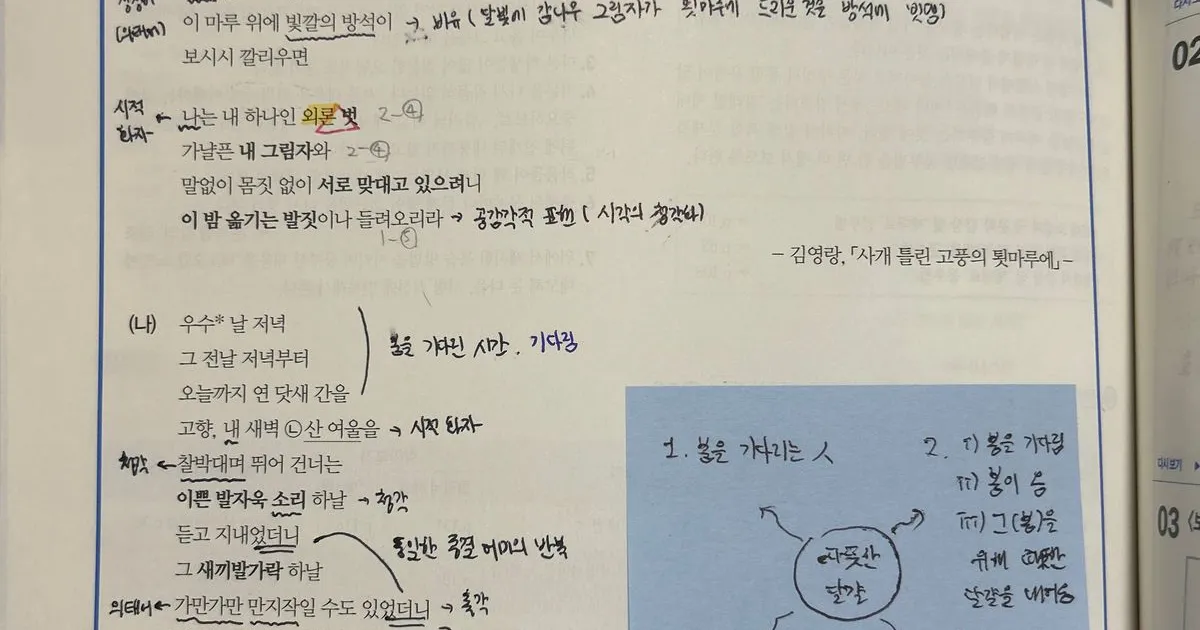 (의태어) 이 마루 위에 빛깔의 방석이 → 비유 (달빛에 감나무 그림자가 툇마루에 드리운 것을 방석에 빗댐)
보시시 깔리우면
시적 화자 ← 나는 내 하나인 외론 벗 2-④
가냘픈 내 그림자와 2-④
말없이 몸짓 없이 서로 맞대고 있으려니
이 밤 옮기는 발짓이나 들려오리라 → 공감각적 표현 (시각의 청각화)
1-⑤
- 김영랑, 「사개 틀린 고풍의 툇마루에」 -
(나) 우수* 날 저녁
그 전날 저녁부터
오늘까지 연 닷새 간을
봄을 기다린 시간. 기다림
고향, 내 새벽 ㉡산 여울을 → 시적 화자
청각 ← 찰박대며 뛰어 건너는
이쁜 발자욱 소리 하날 → 청각
듣고 지내었더니
동일한 종결 어미의 반복
그 새끼발가락 하날
의태어 ← 가만가만 만지작일 수도 있었더니 → 촉각
1. 봄을 기다리는 人
2. ⅰ) 봄을 기다림
ⅱ) 봄이 옴
ⅲ) 그(봄)을
위해 따뜻한
달걀을 내어놓
따뜻한
달걀
02
다시보기
03